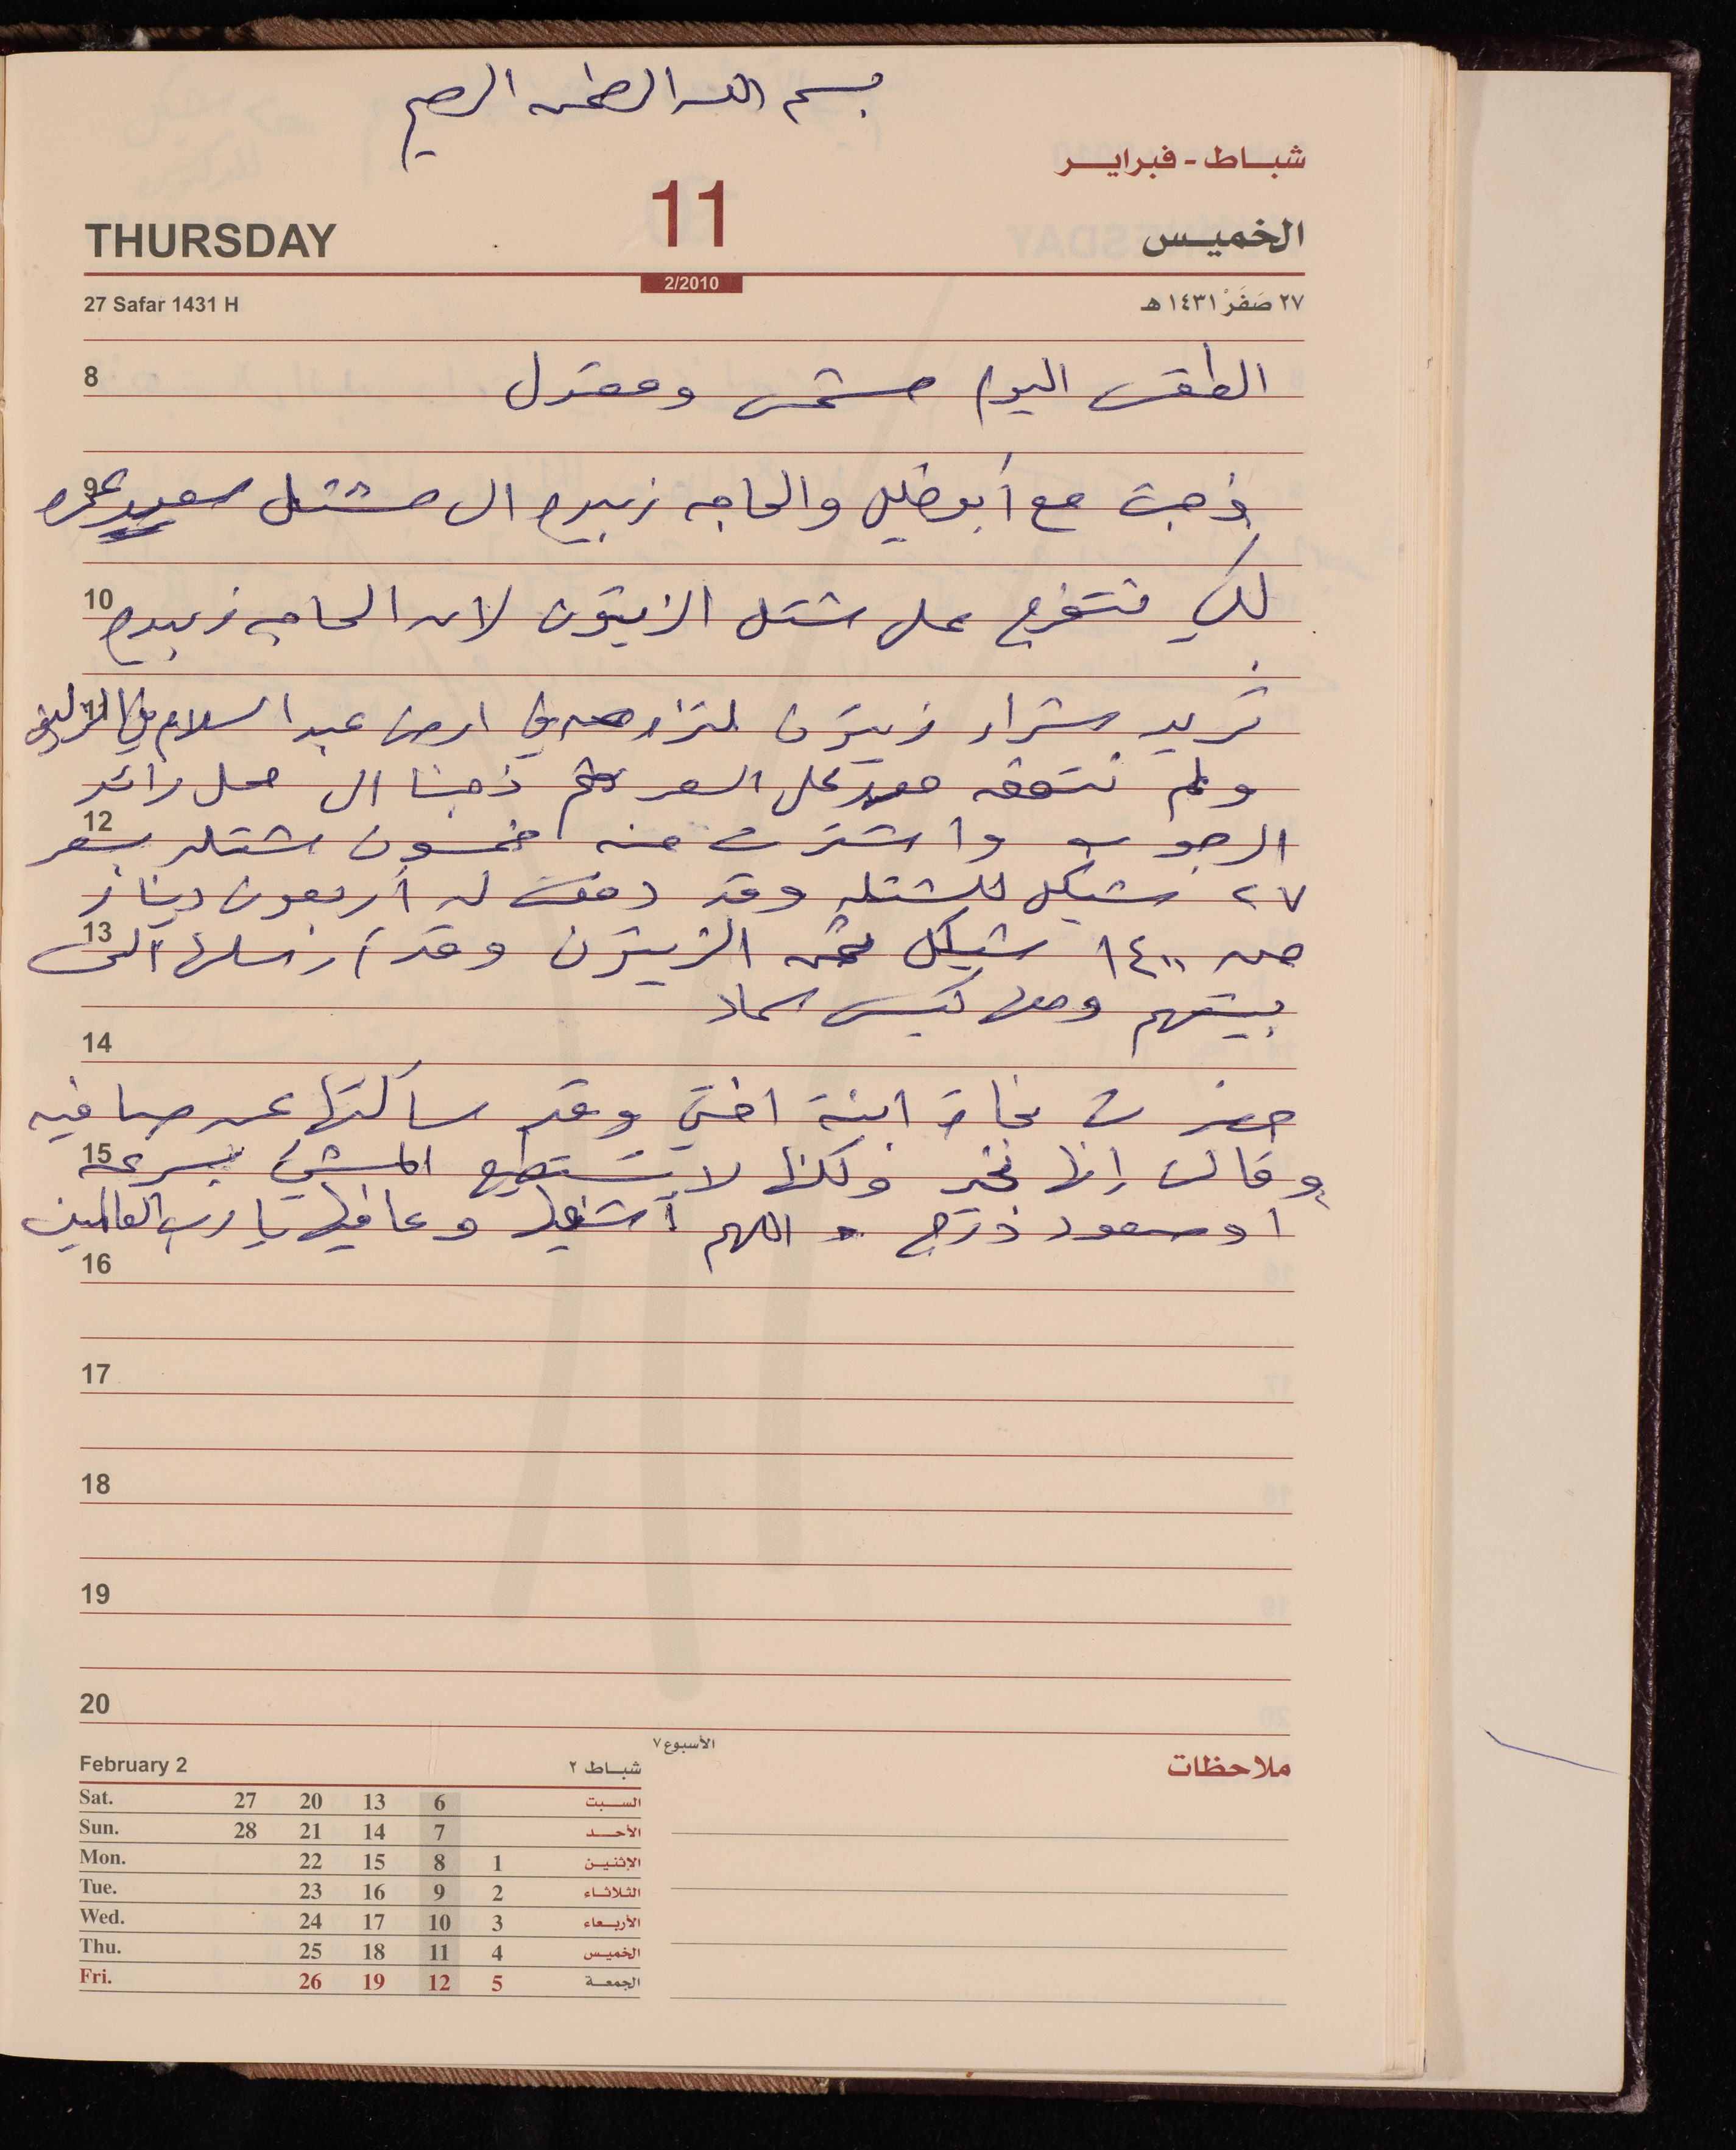 بسم الله الرحمن الرحيم
شباط - فبراير
THURSDAY 11 الخميس
2/2010
27 Safar 1431 H ٢٧ صَفَرْ ١٤٣١ هـ
8 الطقس اليوم مشمس ومعتدل
9 ذهبت مع أبو خليل والحاجه زبيده الى مشتل سعيد عمره
10 لكي نتفرج على شتل الزيتون لان الحاجه زبيده
11 تريد شراء زيتون لتزرعه في ارض عبد السلام في
ولم نتفق معه على السعر ثم ذهبنا الى محل رائد
12 الرجوب واشترت منه خمسون شتله بسعر
٢٧ شيكل للشتله وقد دفعت له أربعون دينار
13 من ١٤٠٠ شيكل ثمن الزيتون وقد أرسلها الى
بيتهم ومعها كيس سماد
14
حضرت نجاة ابنة اختي وقد سألتها عن صافيه
15 وقالت إنها بخير ولكنها لا تستطيع المشي بسرعه
او صعود درج و اللهم أشفيها وعافيها يا رب العالمين
16
17
18
19
20
الأسبوع ٧
February 2 شباط ٢ ملاحظات
Sat. 27 20 13 6 السبت
Sun. 28 21 14 7 الأحد
Mon. 22 15 8 1 الإثنين
Tue. 23 16 9 2 الثلاثاء
Wed. 24 17 10 3 الأربعاء
Thu. 25 18 11 4 الخميس
Fri. 26 19 12 5 الجمعة